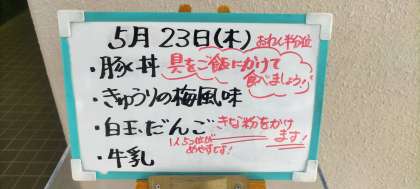 5月23日(木) おわん半分位
・豚丼 具をご飯にかけて
食べましょう!
・きゅうりの梅風味
・白玉だんご きな粉をかけ
ます!
1人5つ位が
めやすです!
・牛乳